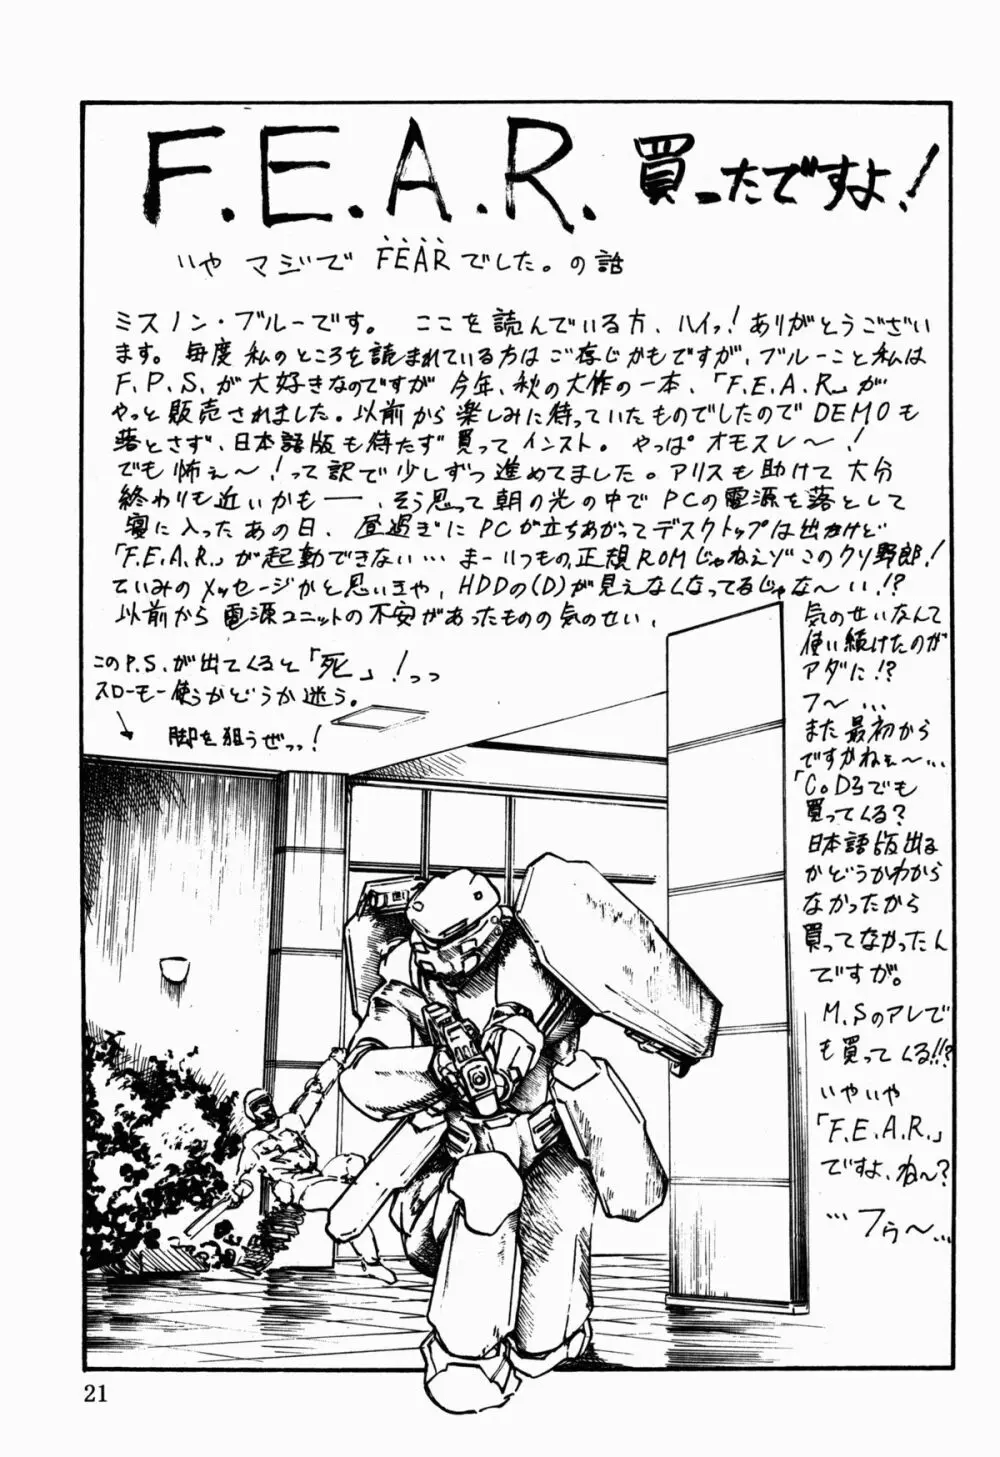 F.E.A.R. 買ったですよ!
いや マジで FEARでした。の話
ミスノン・ブルーです。 ここを読んでいる方、ハイッ!ありがとうござい
ます。毎度私のところを読まれている方はご存じかもですが、ブルーこと私は
F.P.S.が大好きなのですが今年、秋の大作の一本、「F.E.A.R」が
やっと販売されました。以前から楽しみに待っていたものでしたのでDEMOも
落とさず、日本語版も待たず買ってインスト。やっぱオモスレ〜!
でも怖ぇ〜!って訳で少しずつ進めてました。アリスも助けて大分
終わりも近いかも――、そう思って朝の光の中でPCの電源を落として
寝に入ったあの日、昼過ぎにPCが立ちあがってデスクトップは出たけど
「F.E.A.R.」が起動できない… まーいつもの正規ROMじゃねえゾこのクソ野郎!
ていみのメッセージかと思いきや、HDDの(D)が見えなくなってるじゃな〜い!?
以前から電源ユニットの不安があったものの気のせい、
気のせいなんて
使い続けたのが
アダに!?
フ〜…
また最初から
ですかねぇ〜…
「CoD3でも
買ってくる?
日本語版出る
かどうかわから
なかったから
買ってなかったん
ですが。
M.Sのアレで
も買ってくる!!?
いやいや
「F.E.A.R.」
ですよ、ね〜?
…フゥ〜…
このP.S.が出てくると「死」!っっ
スローモー使うかどうか迷う。
脚を狙うぜっっ!
21